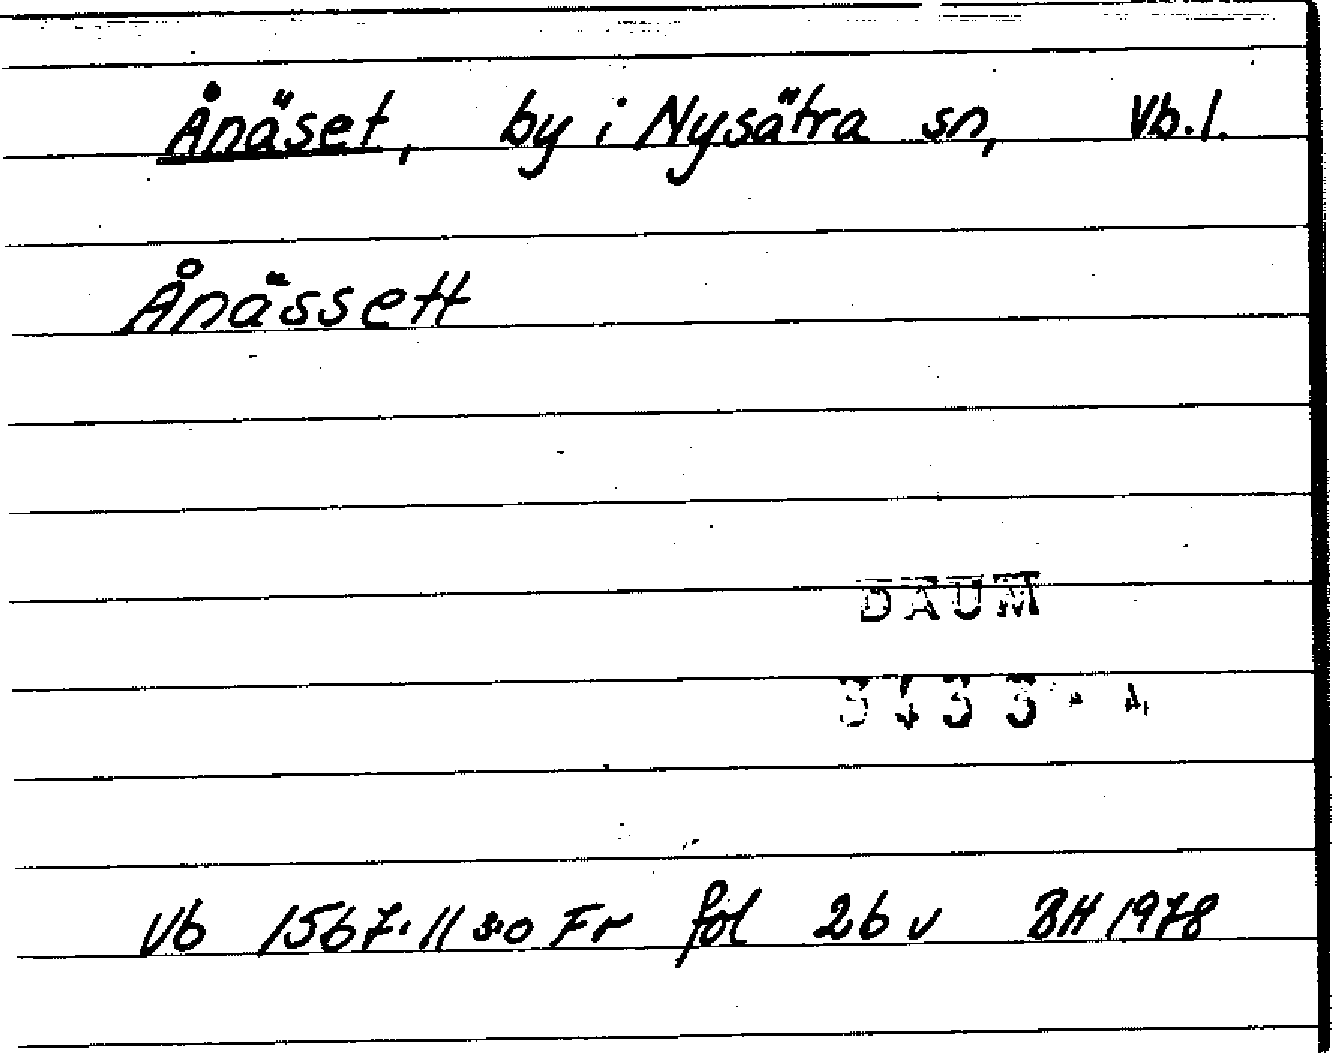 Ånäset, by i Nysätra sn, Vb.l.
Ånässett
DAUM
Vb 1567:11 s:o Fr fol 26 v BH 1978